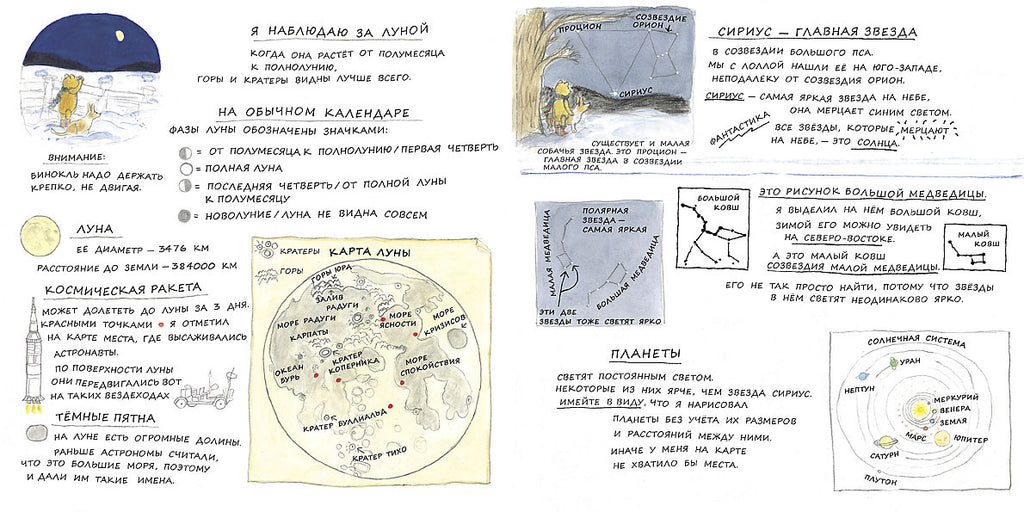 Я НАБЛЮДАЮ ЗА ЛУНОЙ
КОГДА ОНА РАСТЁТ ОТ ПОЛУМЕСЯЦА
К ПОЛНОЛУНИЮ,
ГОРЫ И КРАТЕРЫ ВИДНЫ ЛУЧШЕ ВСЕГО.
НА ОБЫЧНОМ КАЛЕНДАРЕ
ФАЗЫ ЛУНЫ ОБОЗНАЧЕНЫ ЗНАЧКАМИ:
= ОТ ПОЛУМЕСЯЦА К ПОЛНОЛУНИЮ/ПЕРВАЯ ЧЕТВЕРТЬ
= ПОЛНАЯ ЛУНА
= ПОСЛЕДНЯЯ ЧЕТВЕРТЬ/ОТ ПОЛНОЙ ЛУНЫ
К ПОЛУМЕСЯЦУ
= НОВОЛУНИЕ/ЛУНА НЕ ВИДНА СОВСЕМ
ВНИМАНИЕ:
БИНОКЛЬ НАДО ДЕРЖАТЬ
КРЕПКО, НЕ ДВИГАЯ.
ЛУНА
ЕЁ ДИАМЕТР – 3476 КМ
РАССТОЯНИЕ ДО ЗЕМЛИ – 384000 КМ
КОСМИЧЕСКАЯ РАКЕТА
МОЖЕТ ДОЛЕТЕТЬ ДО ЛУНЫ ЗА 3 ДНЯ.
КРАСНЫМИ ТОЧКАМИ • Я ОТМЕТИЛ
НА КАРТЕ МЕСТА, ГДЕ ВЫСАЖИВАЛИСЬ
АСТРОНАВТЫ.
ПО ПОВЕРХНОСТИ ЛУНЫ
ОНИ ПЕРЕДВИГАЛИСЬ ВОТ
НА ТАКИХ ВЕЗДЕХОДАХ
ТЁМНЫЕ ПЯТНА
НА ЛУНЕ ЕСТЬ ОГРОМНЫЕ ДОЛИНЫ.
РАНЬШЕ АСТРОНОМЫ СЧИТАЛИ,
ЧТО ЭТО БОЛЬШИЕ МОРЯ, ПОЭТОМУ
И ДАЛИ ИМ ТАКИЕ ИМЕНА.
КРАТЕРЫ
КАРТА ЛУНЫ
ГОРЫ
ГОРЫ ЮРА
ЗАЛИВ
РАДУГИ
МОРЕ РАДУГИ
МОРЕ
ЯСНОСТИ
МОРЕ
КРИЗИСОВ
КАРПАТЫ
КРАТЕР
КОПЕРНИКА
ОКЕАН
БУРЬ
МОРЕ
СПОКОЙСТВИЯ
КРАТЕР БУЛЛИАЛЬД
КРАТЕР ТИХО
ПРОЦИОН
СОЗВЕЗДИЕ
ОРИОН
СИРИУС
СУЩЕСТВУЕТ И МАЛАЯ
СОБАЧЬЯ ЗВЕЗДА. ЭТО ПРОЦИОН –
ГЛАВНАЯ ЗВЕЗДА В СОЗВЕЗДИИ
МАЛОГО ПСА.
СИРИУС – ГЛАВНАЯ ЗВЕЗДА
В СОЗВЕЗДИИ БОЛЬШОГО ПСА.
МЫ С ЛОЛЛОЙ НАШЛИ ЕЁ НА ЮГО-ЗАПАДЕ,
НЕПОДАЛЕКУ ОТ СОЗВЕЗДИЯ ОРИОН.
СИРИУС – САМАЯ ЯРКАЯ ЗВЕЗДА НА НЕБЕ,
ОНА МЕРЦАЕТ СИНИМ СВЕТОМ.
ФАНТАСТИКА
ВСЕ ЗВЁЗДЫ, КОТОРЫЕ МЕРЦАЮТ
НА НЕБЕ, – ЭТО СОЛНЦА.
ПОЛЯРНАЯ
ЗВЕЗДА –
САМАЯ ЯРКАЯ
МАЛАЯ МЕДВЕДИЦА
БОЛЬШАЯ МЕДВЕДИЦА
ЭТИ ДВЕ
ЗВЕЗДЫ ТОЖЕ СВЕТЯТ ЯРКО
БОЛЬШОЙ
КОВШ
ЭТО РИСУНОК БОЛЬШОЙ МЕДВЕДИЦЫ.
Я ВЫДЕЛИЛ НА НЁМ БОЛЬШОЙ КОВШ,
ЗИМОЙ ЕГО МОЖНО УВИДЕТЬ
НА СЕВЕРО-ВОСТОКЕ.
А ЭТО МАЛЫЙ КОВШ
СОЗВЕЗДИЯ МАЛОЙ МЕДВЕДИЦЫ.
МАЛЫЙ
КОВШ
ЕГО НЕ ТАК ПРОСТО НАЙТИ, ПОТОМУ ЧТО ЗВЁЗДЫ
В НЁМ СВЕТЯТ НЕОДИНАКОВО ЯРКО.
ПЛАНЕТЫ
СВЕТЯТ ПОСТОЯННЫМ СВЕТОМ.
НЕКОТОРЫЕ ИЗ НИХ ЯРЧЕ, ЧЕМ ЗВЕЗДА СИРИУС.
ИМЕЙТЕ В ВИДУ, ЧТО Я НАРИСОВАЛ
ПЛАНЕТЫ БЕЗ УЧЕТА ИХ РАЗМЕРОВ
И РАССТОЯНИЙ МЕЖДУ НИМИ.
ИНАЧЕ У МЕНЯ НА КАРТЕ
НЕ ХВАТИЛО БЫ МЕСТА.
СОЛНЕЧНАЯ СИСТЕМА
УРАН
НЕПТУН
МЕРКУРИЙ
ВЕНЕРА
ЗЕМЛЯ
МАРС
ЮПИТЕР
САТУРН
ПЛУТОН